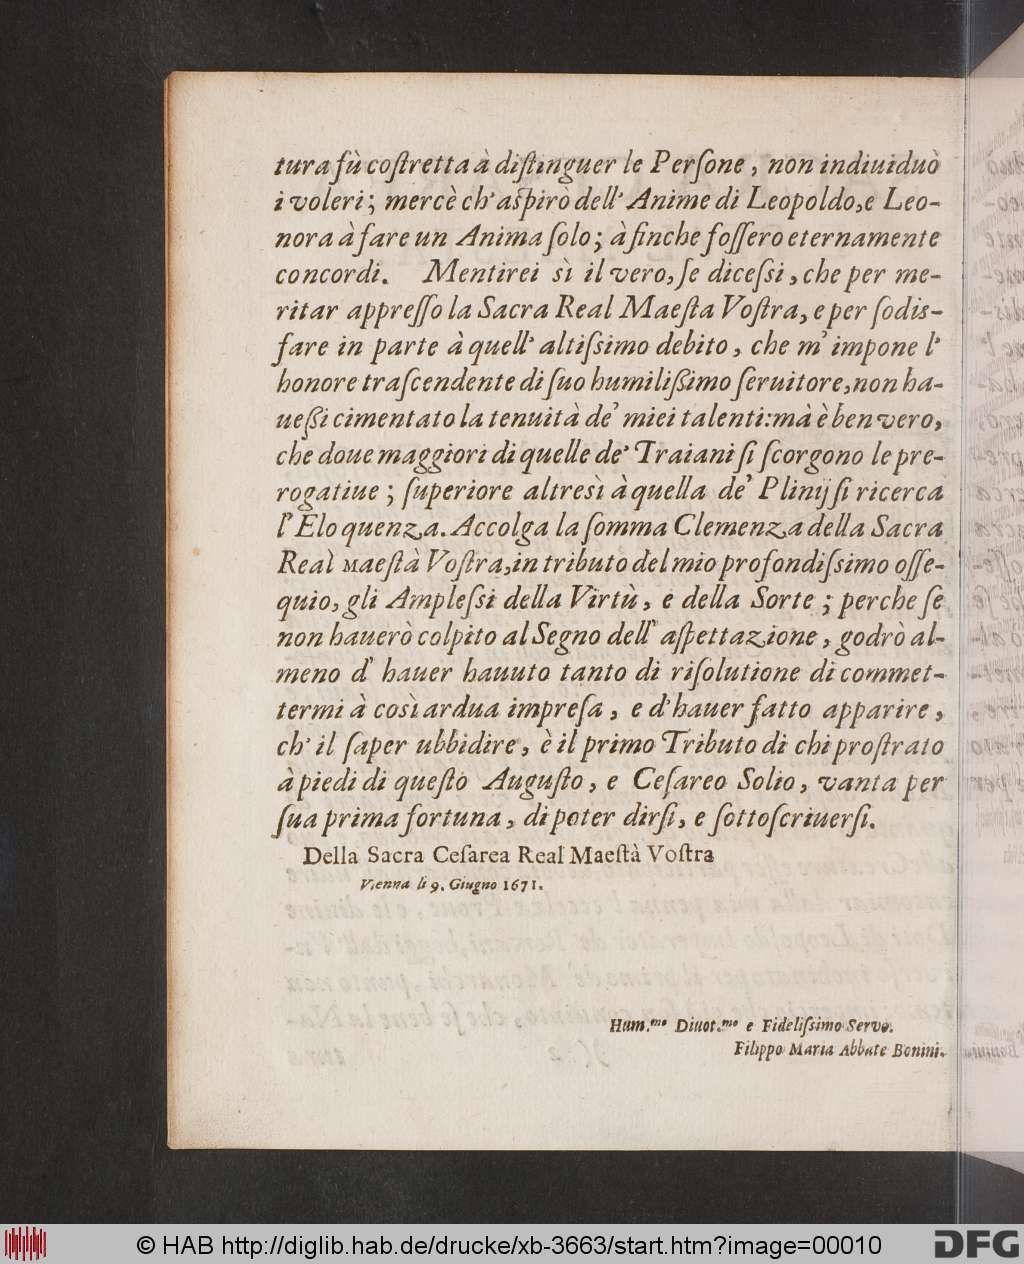 tura fù coſtretta à diſtinguer le Perſone, non indiuiduò
i voleri; mercè ch' aſpirò dell' Anime di Leopoldo, e Leo-
nora à fare un Anima ſolo; à finche foſſero eternamente
concordi. Mentirei sì il vero, ſe diceſsi, che per me-
ritar appreſſo la Sacra Real Maeſta Voſtra, e per ſodis-
fare in parte à quell' altiſsimo debito, che m' impone l'
honore traſcendente di ſuo humilißimo ſeruitore, non ha-
ueßi cimentato la tenuità de' miei talenti: mà è ben vero,
che doue maggiori di quelle de' Traiani ſi ſcorgono le pre-
rogatiue; ſuperiore altresì à quella de' Plinij ſi ricerca
l' Eloquenza. Accolga la ſomma Clemenza della Sacra
Real Maeſtà Voſtra, in tributo del mio profondiſsimo oſſe-
quio, gli Ampleſsi della Virtù, e della Sorte; perche ſe
non hauerò colpito al Segno dell' aſpettazione, godrò al-
meno d' hauer hauuto tanto di riſolutione di commet-
termi à così ardua impreſa, e d' hauer fatto apparire,
ch' il ſaper ubbidire, è il primo Tributo di chi proſtrato
à piedi di queſto Auguſto, e Ceſareo Solio, vanta per
ſua prima fortuna, di poter dirſi, e ſottoſcriuerſi.
Della Sacra Ceſarea Real Maeſtà Voſtra
Vienna li 9. Giugno 1671.
Hum.mo Diuot.mo e Fideliſsimo Servo.
Filippo Maria Abbate Bonini.
© HAB http://diglib.hab.de/drucke/xb-3663/start.htm?image=00010
DFG